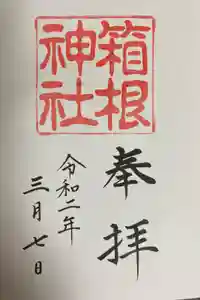 奉拝
箱根
神社
令和二年
三月七日